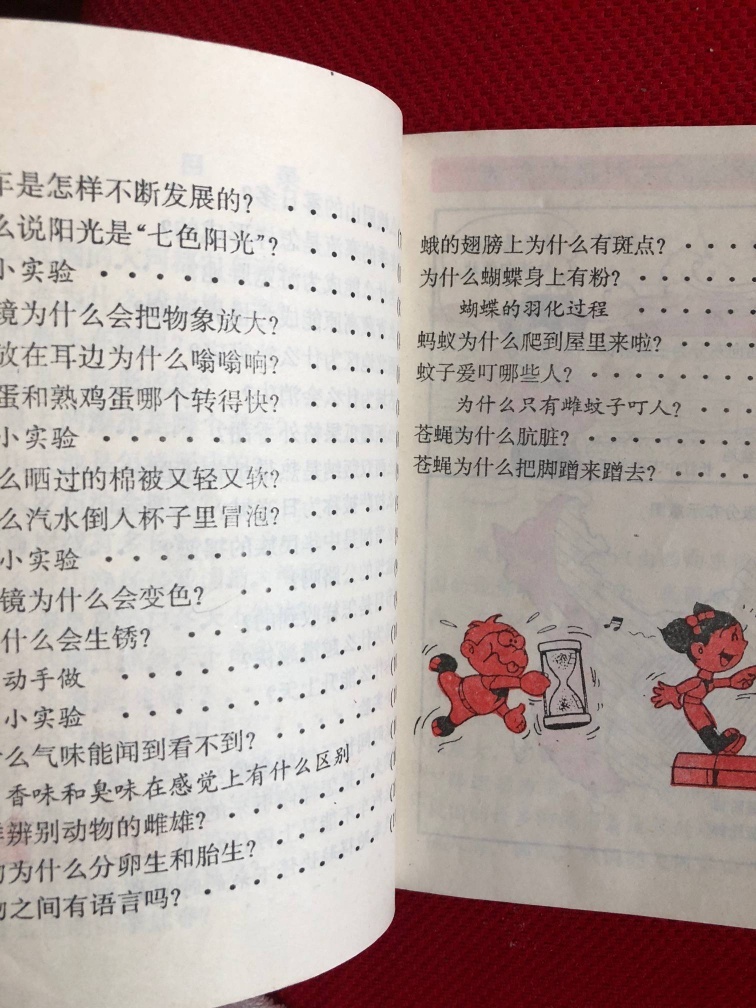 车是怎样不断发展的?
么说阳光是“七色阳光”?
小实验
镜为什么会把物象放大?
放在耳边为什么嗡嗡响?
蛋和熟鸡蛋哪个转得快?
小实验
么晒过的棉被又轻又软?
么汽水倒入杯子里冒泡?
小实验
镜为什么会变色?
什么会生锈?
动手做
小实验
什么气味能闻到看不到?
香味和臭味在感觉上有什么区别
样辨别动物的雌雄?
物为什么分卵生和胎生?
物之间有语言吗?
蛾的翅膀上为什么有斑点?
为什么蝴蝶身上有粉?
蝴蝶的羽化过程
蚂蚁为什么爬到屋里来啦?
蚊子爱叮哪些人?
为什么只有雌蚊子叮人?
苍蝇为什么肮脏?
苍蝇为什么把脚蹭来蹭去?